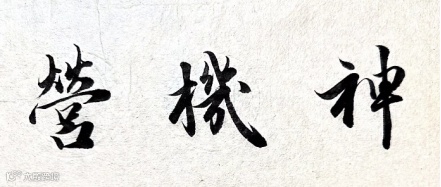 營機神